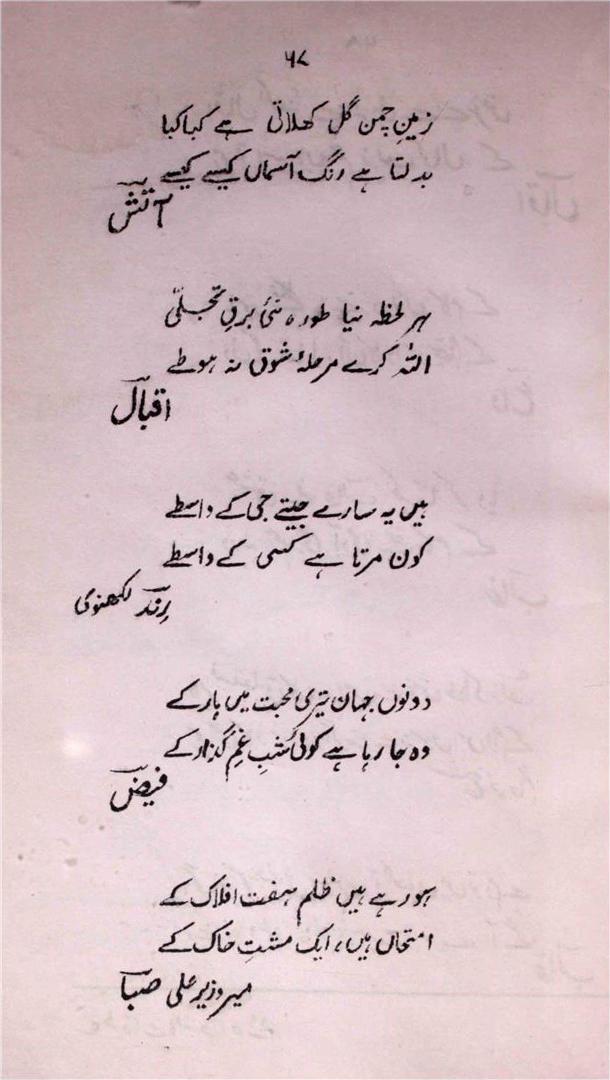 ۶۷
زمینِ چمن گل کھلاتی ہے کیا کیا
بدلتا ہے رنگ آسماں کیسے کیسے
آتش
ہر لحظہ نیا طور، نئی برقِ تجلّی
اللہ کرے مرحلۂ شوق نہ ہو طے
اقبال
ہیں یہ سارے جیتے جی کے واسطے
کون مرتا ہے کسی کے واسطے
رند لکھنوی
دونوں جہان تیری محبت میں ہار کے
وہ جا رہا ہے کوئی شبِ غم گذار کے
فیض
ہو رہے ہیں ظلم ہفت افلاک کے
امتحاں ہیں، ایک مشتِ خاک کے
میر وزیر علی صبا